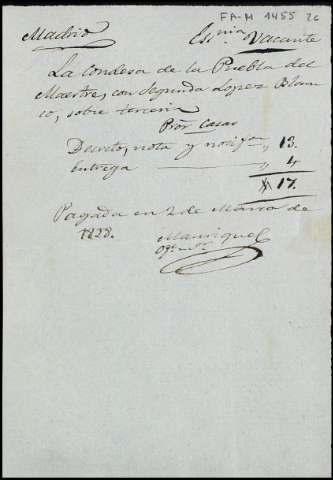 FA-M 1455 26
Madrid Es.nia Vacante
La Condesa de la Puebla del
Maestre, con Segunda Lopez Blan
co, sobre terceria
Pror Casas
Decreto, nota y notifon " 13.
Entrega " 4
17.
Pagada en 2 de Marzo de
1828.
Manrique